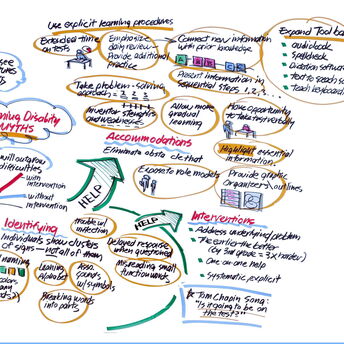 Use explicit learning procedures
Extended time
on tests
Emphasize
daily review
Provide
Additional
Practice
Connect new information
with prior knowledge
A B C
Present information in
Sequential Steps 1, 2, 3...
Expand Tool
audiobook
Spellcheck
Dictation software
Text to speech
Teach keyboard
Take problem-solving
approach
Inventory strengths
and weaknesses
Allow more
gradual
learning
Have opportunity
to take tests verbally
Accommodations
Eliminate obstacle that
Highlight essential
information
Expose to role models
Provide graphic
organizers, outlines
Learning Disability
MYTHS
will outgrow
difficulties
with
intervention
without
intervention
HELP
HELP
Identifying
Individuals show clusters
of signs - not all of them
naming
colors
Learning
alphabet
Asso.
sounds
w/symbols
Breaking words
into parts
Trouble w/
Delayed response
when questioned
Misreading small
function words
Interventions
Address underlying problem
The earlier the better
(by 3rd grade = 3x harder)
One on one help
Systematic explicit
Tom Chapin Song:
"Is it going to be on
the test?"